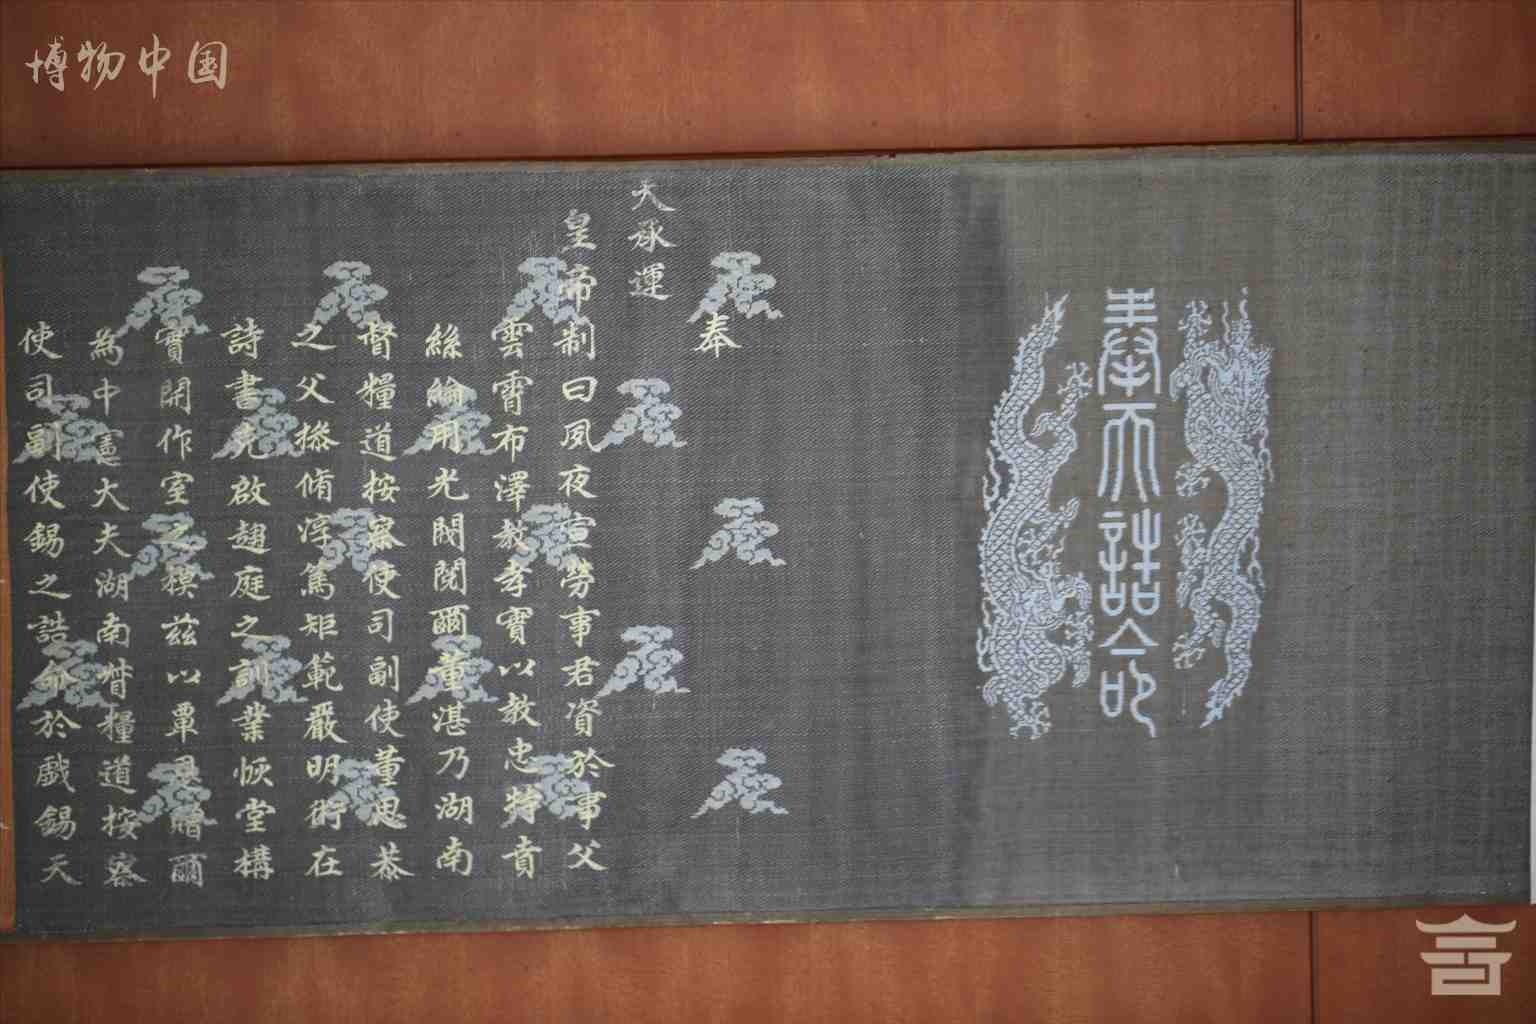 博物中国
奉天誥命
奉
天承運
皇帝制曰夙夜宣勞事君資於事父
雲霄布澤教孝實以教忠特賁
絲綸用光閥閱爾董湛乃湖南
督糧道按察使司副使董思恭
之父操脩淳篤矩範嚴明術在
詩書克啟趨庭之訓業恢堂構
實開作室之模茲以覃恩贈爾
為中憲大夫湖南督糧道按察
使司副使錫之誥命於戲錫天